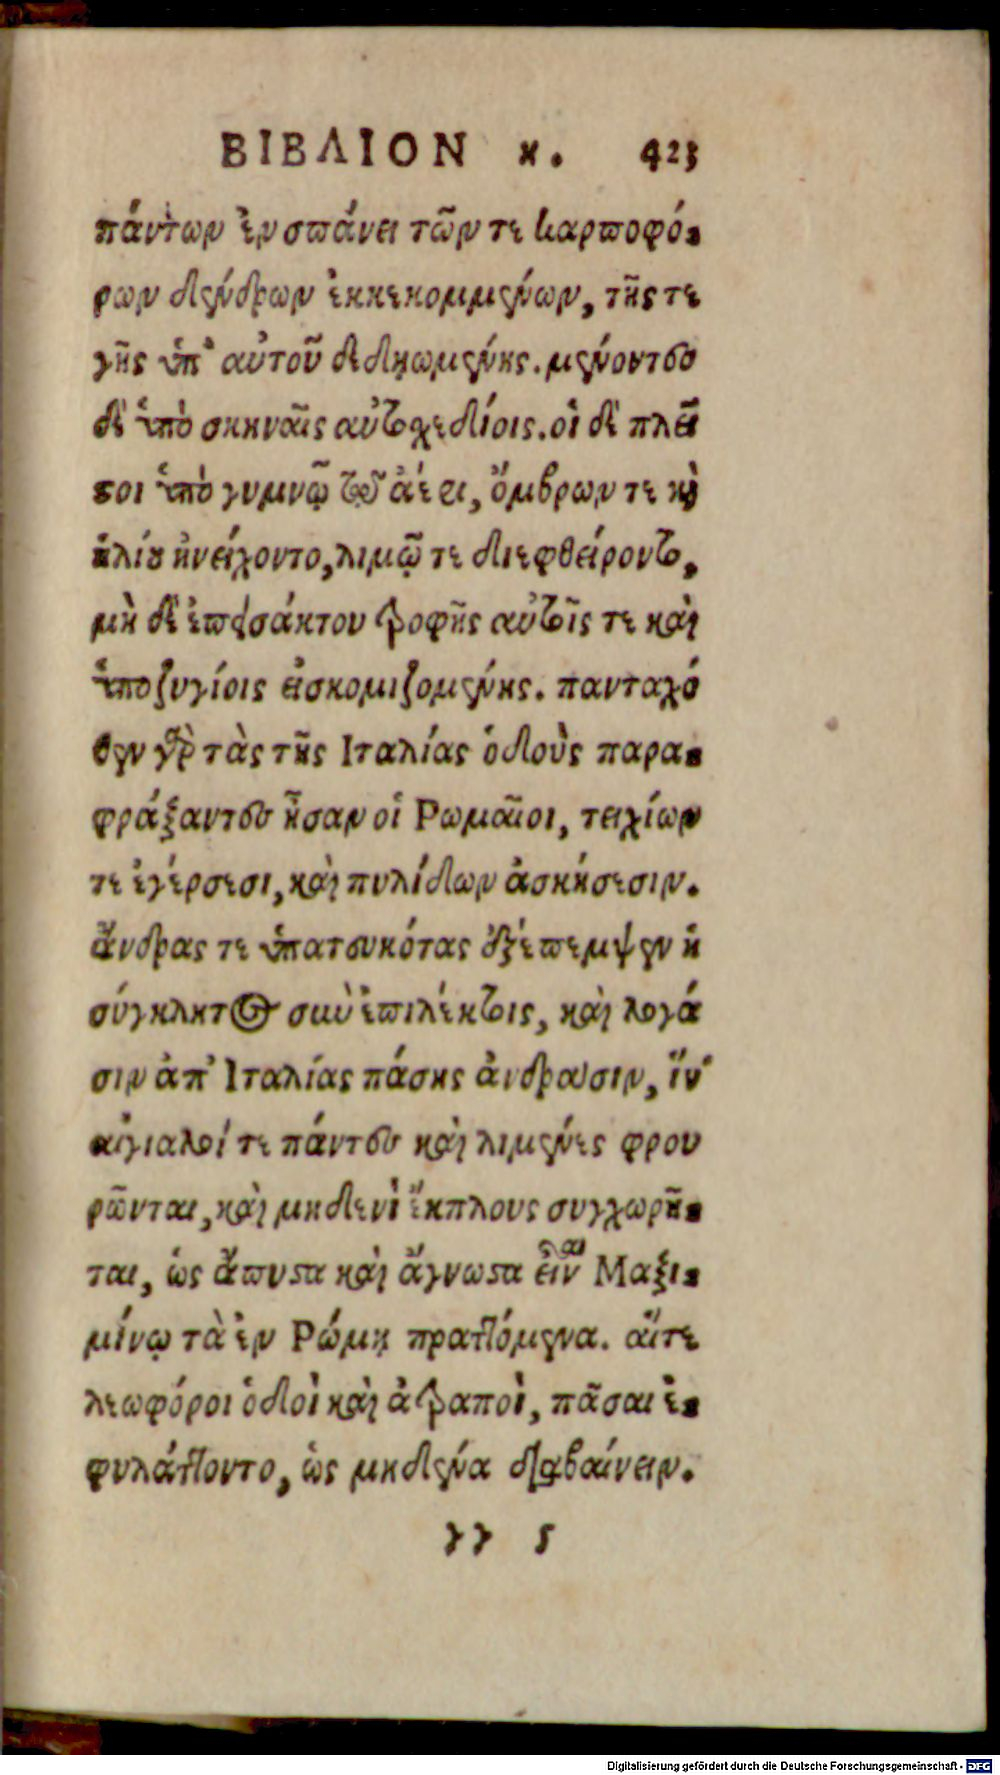 ΒΙΒΛΙΟΝ κ. 423
πάντων ἐν σπάνει τῶν τε καρποφό-
ρων δένδρων ἐκκεκομμένων, τῆς τε
γῆς ὑπ' αὐτοῦ δεδῃωμένης. μένοντες
δὲ ὑπὸ σκηναῖς αὐτοχεδίοις. οἱ δὲ πλεῖ
στοι ὑπὸ γυμνῷ τῷ ἀέρι, ὄμβρων τε καὶ
ἡλίου ἠνείχοντο, λιμῷ τε διεφθείροντο,
μὴ δὲ ἐπεισάκτου τροφῆς αὐτοῖς τε καὶ
ὑποζυγίοις εἰσκομιζομένης. πανταχό
θεν γὰρ τὰς τῆς Ιταλίας ὁδοὺς παρα-
φράξαντες ἦσαν οἱ Ρωμαῖοι, τειχίων
τε ἐγέρσεσι, καὶ πυλίδων ἀσκήσεσιν.
ἄνδρας τε ὑπατευκότας ἐξέπεμψεν ἡ
σύγκλητος σὺν ἐπιλέκτοις, καὶ λογά
σιν ἀπ' Ιταλίας πάσης ἀνδράσιν, ἵν'
αἰγιαλοί τε πάντες καὶ λιμένες φρου
ρῶνται, καὶ μηδενὶ ἔκπλους συγχωρῆ-
ται, ὡς ἄπυστα καὶ ἄγνωστα εἶναι Μαξι-
μίνῳ τὰ ἐν Ρώμῃ πραττόμενα. αἵτε
λεωφόροι ὁδοὶ καὶ ἀτραποὶ, πᾶσαι ἐ-
φυλάττοντο, ὡς μηδένα διαβαίνειν.
γγ 5
Digitalisierung gefördert durch die Deutsche Forschungsgemeinschaft - DFG